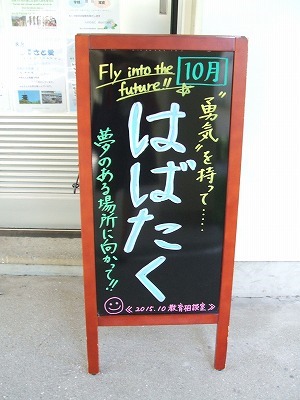 Fly into the
future!!
10月
"勇気"を持って……
はばたく
夢のある場所に向かって!!
≪2015.10 教育相談室≫